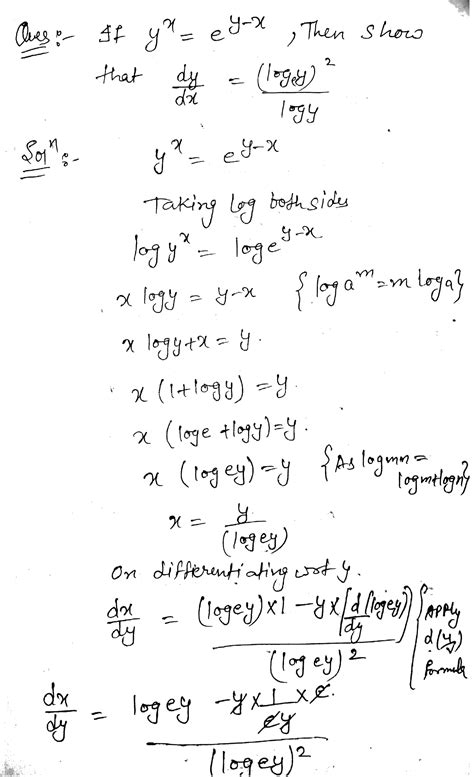 Ques :- If y^x = e^{y-x}, Then show
that dy/dx = (logey)^2 / logy
Sol^n :- y^x = e^{y-x}
Taking log both sides
log y^x = loge^{y-x}
x logy = y-x {log a^m = m loga}
x logy + x = y.
x (1+logy) = y.
x (loge + logy) = y.
x (logey) = y {As logmn = logm+logn}
x = y / (logey)
On differentiating wrt y.
dx/dy = ((logey) x 1 - y x [d/dy (logey)]) / (logey)^2 {Apply d(y) formula
dx/dy = (logey - y x 1/ey x e.) / (logey)^2